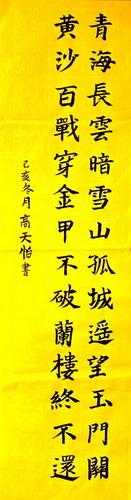 青海長雲暗雪山孤城遥望玉門關
黃沙百戰穿金甲不破蘭樓終不還
己亥冬月高天怡書